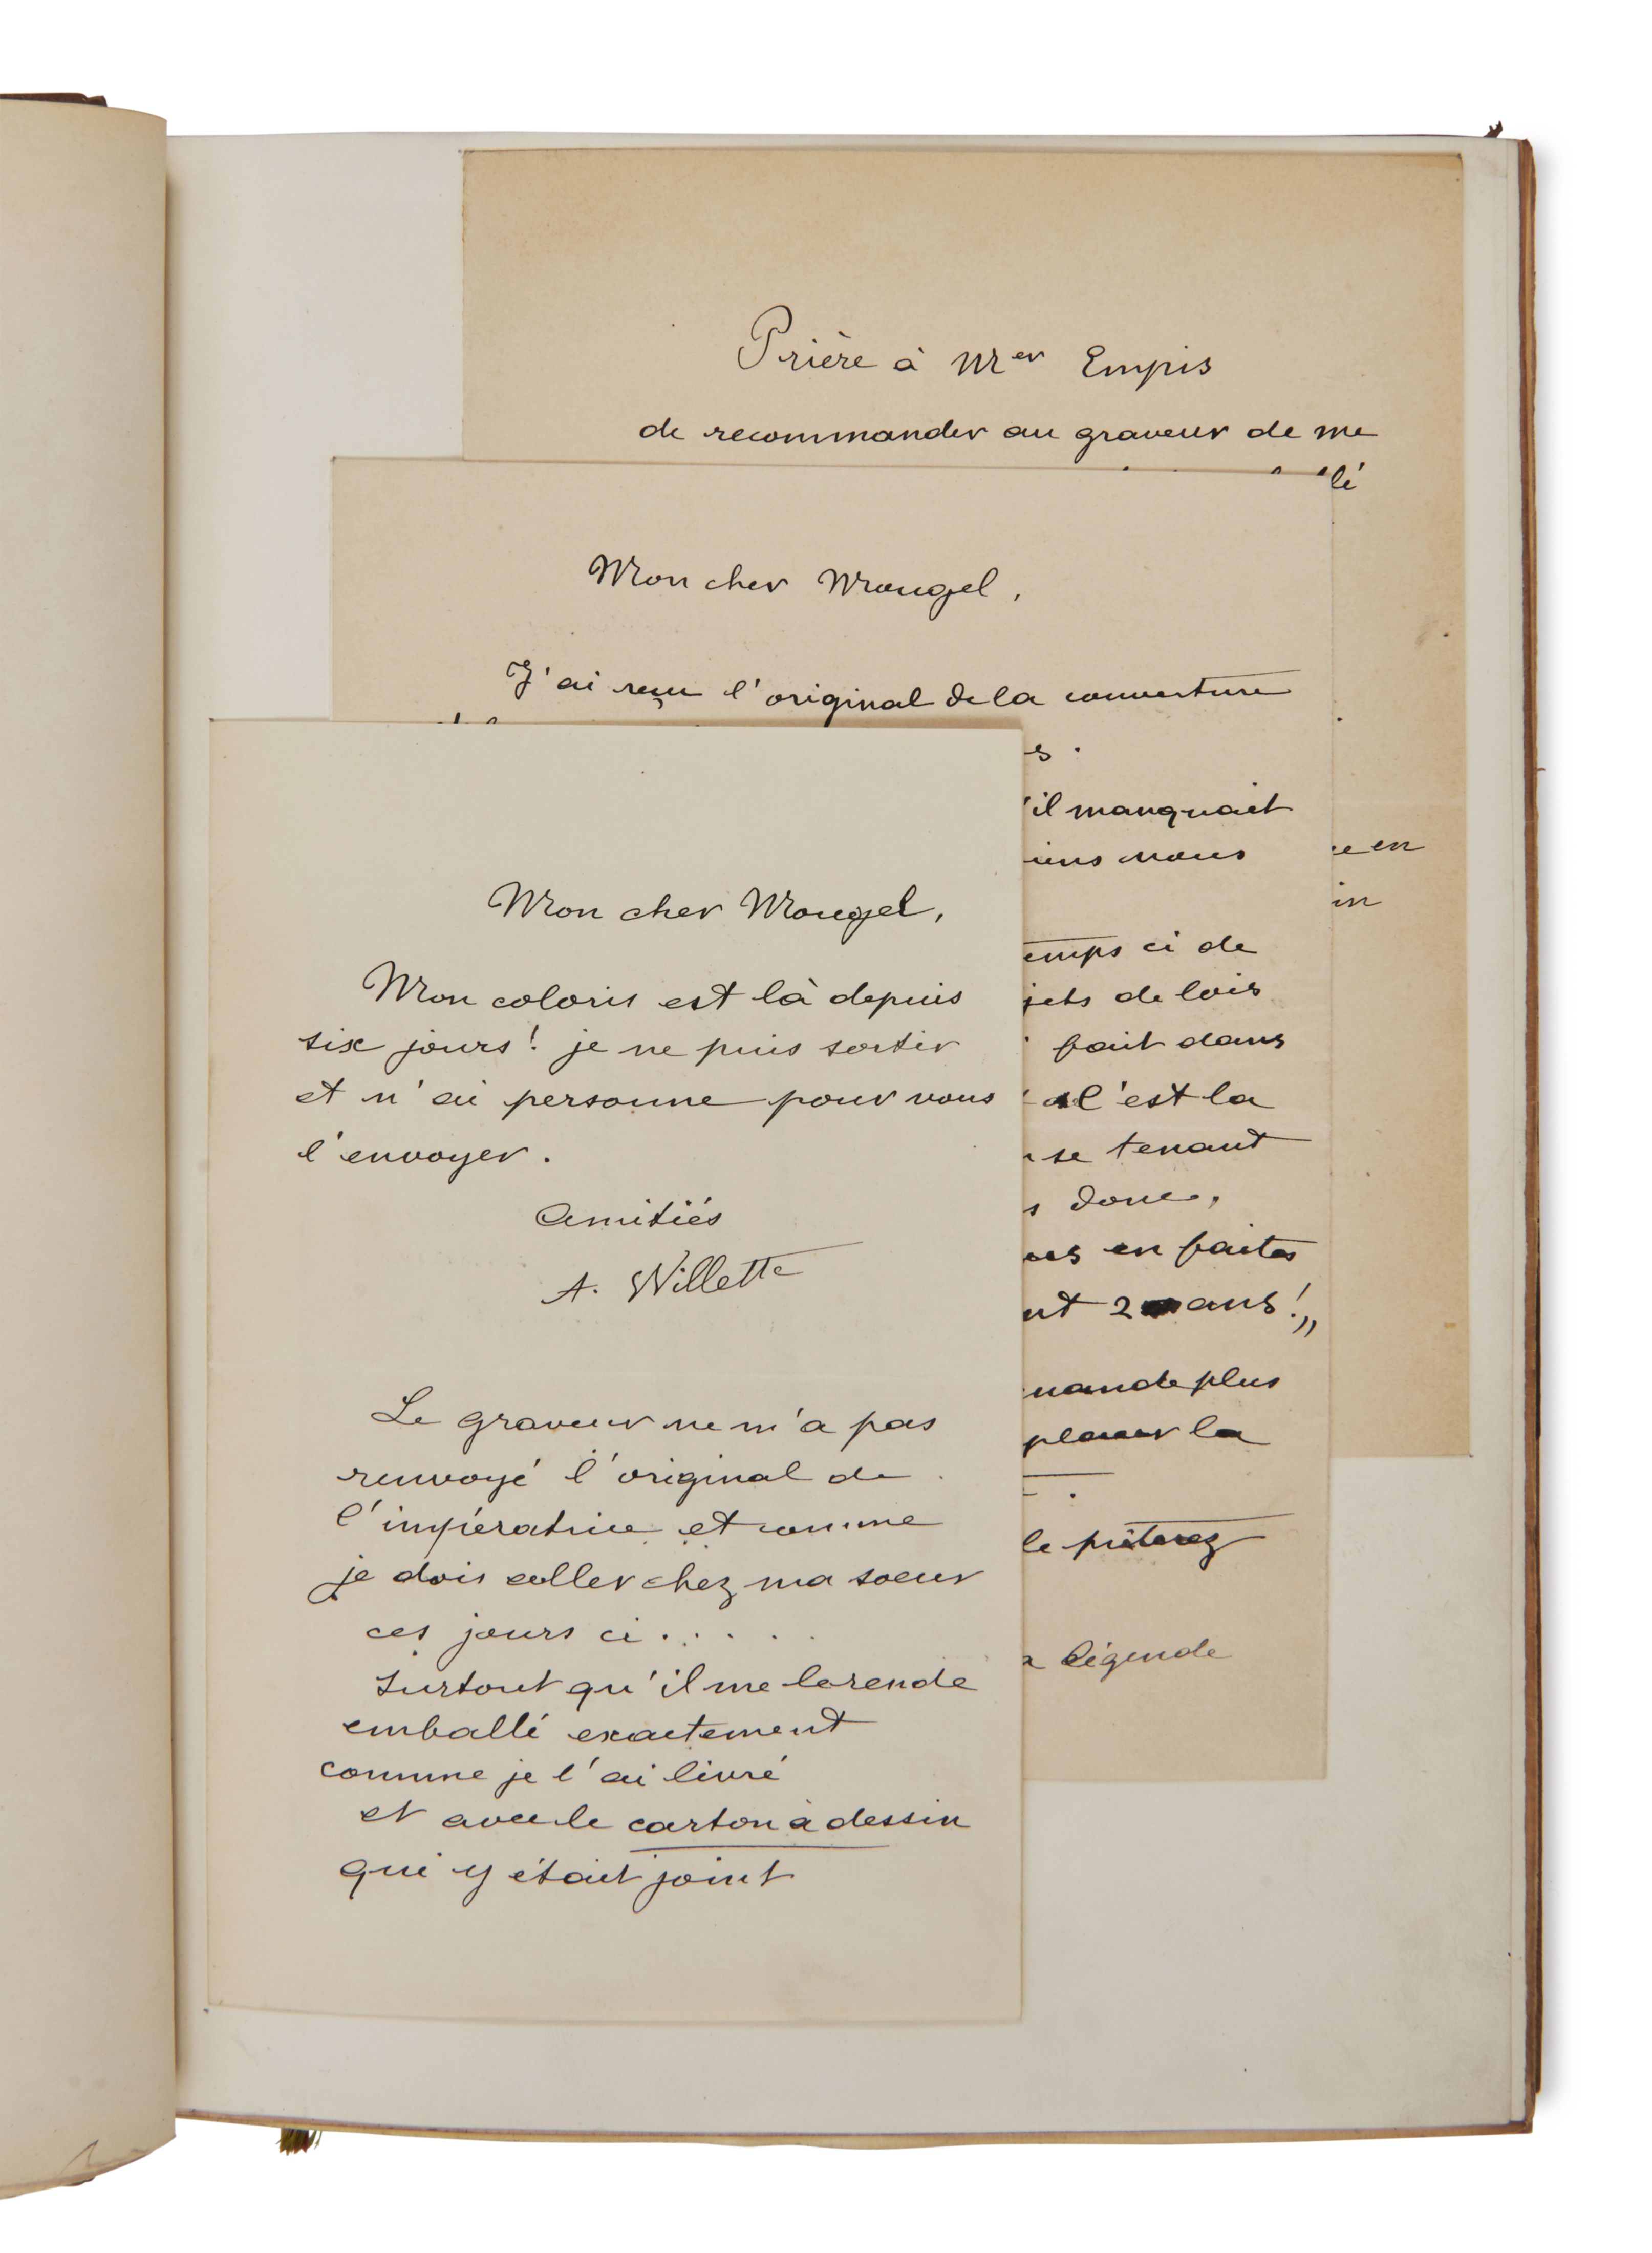 Prière à Mer Empis
de recommander au graveur de me
lé
e en
in
Mon cher Mougel,
J'ai reçu l'original de la couverture
s.
'il manquait
iens nous
emps ci de
jets de lois
fait dans
c'est la
se tenant
s donc,
en faites
nt 2 ans!"
mande plus
placer la
le prêterez
a légende
Mon cher Mougel,
Mon coloris est là depuis
six jours! je ne puis sortir
et n'ai personne pour vous
l'envoyer.
Amitiés
A. Willette
Le graveur ne m'a pas
renvoyé l'original de
l'impératrice et comme
je dois aller chez ma soeur
ces jours ci.....
surtout qu'il me le rende
emballé exactement
comme je l'ai livré
et avec le carton à dessin
qui y était joint